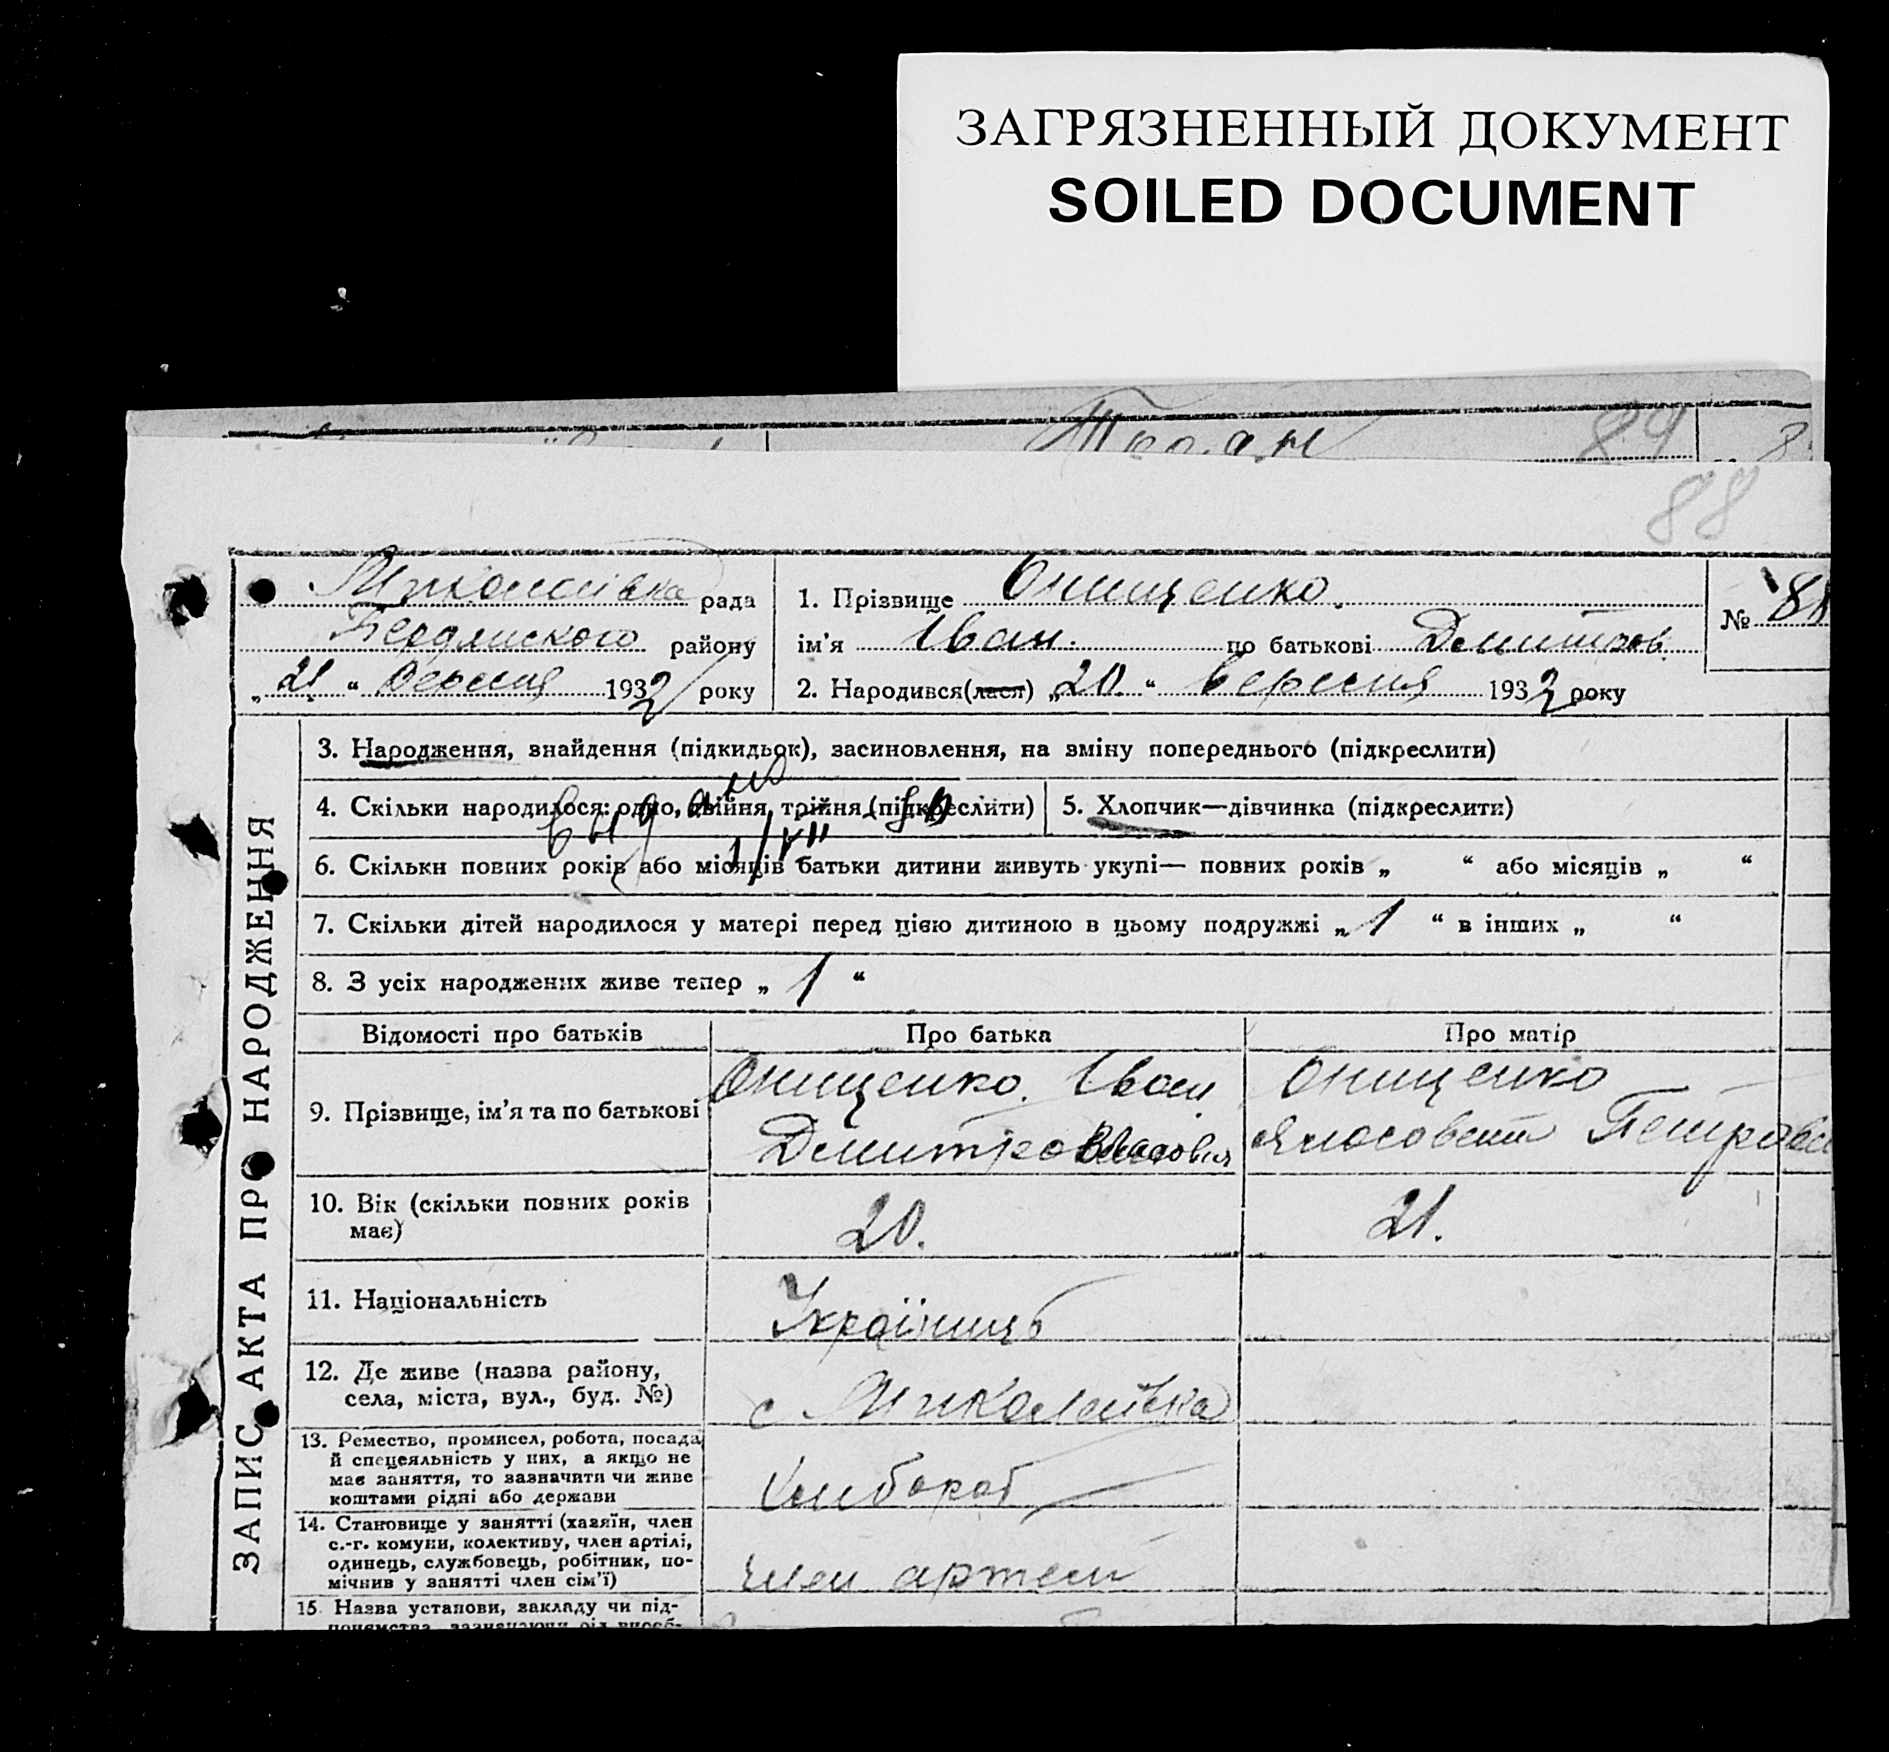 ЗАГРЯЗНЕННЫЙ ДОКУМЕНТ
SOILED DOCUMENT
89
88
Миколаївка рада
1. Прізвище Онищенко.
№ 88
району
ім'я Іван. по батькові Дмитров.
„21“ Вересня 1932 року
2. Народився(лася) „20.“ вересня 1932 року
ЗАПИС АКТА ПРО НАРОДЖЕННЯ
3. Народження, знайдення (підкидьок), засиновлення, на зміну попереднього (підкреслити)
4. Скільки народилося: одно, двійня, трійня (підкреслити)
5. Хлопчик—дівчинка (підкреслити)
видано
6. Скільки повних років або місяців батьки дитини живуть укупі— повних років „ “ або місяців „ “
7. Скільки дітей народилося у матері перед цією дитиною в цьому подружжі „1“ в інших „ “
8. З усіх народжених живе тепер „1“
Відомості про батьків
Про батька
Про матір
9. Прізвище, ім'я та по батькові
Онищенко. Іван
Онищенко
Петровн
10. Вік (скільки повних років
має)
20.
21.
11. Національність
Українць
12. Де живе (назва району,
села, міста, вул., буд. №)
с Миколаївка
13. Ремество, промисел, робота, посада
й спецеяльність у них, а якщо не
має заняття, то зазначити чи живе
коштами рідні або держави
хлібороб
14. Становище у занятті (хазяїн, член
с.-г. комуни, колективу, член артілі,
одинець, службовець, робітник, по-
мічник у занятті член сім'ї)
член артели
15. Назва установи, закладу чи під-